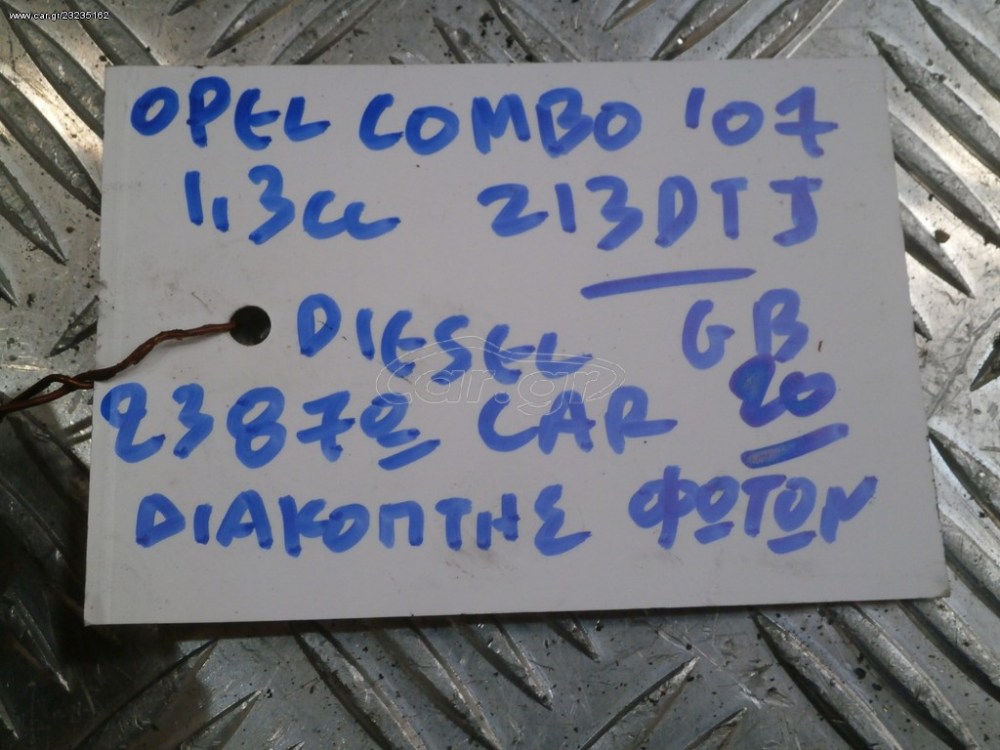 www.car.gr/23235162
OPEL COMBO '07
1,3cc Z13DTJ
DIESEL GB
2387Ω CAR 20
ΔΙΑΚΟΠΤΗΣ ΦΩΤΩΝ
car.gr